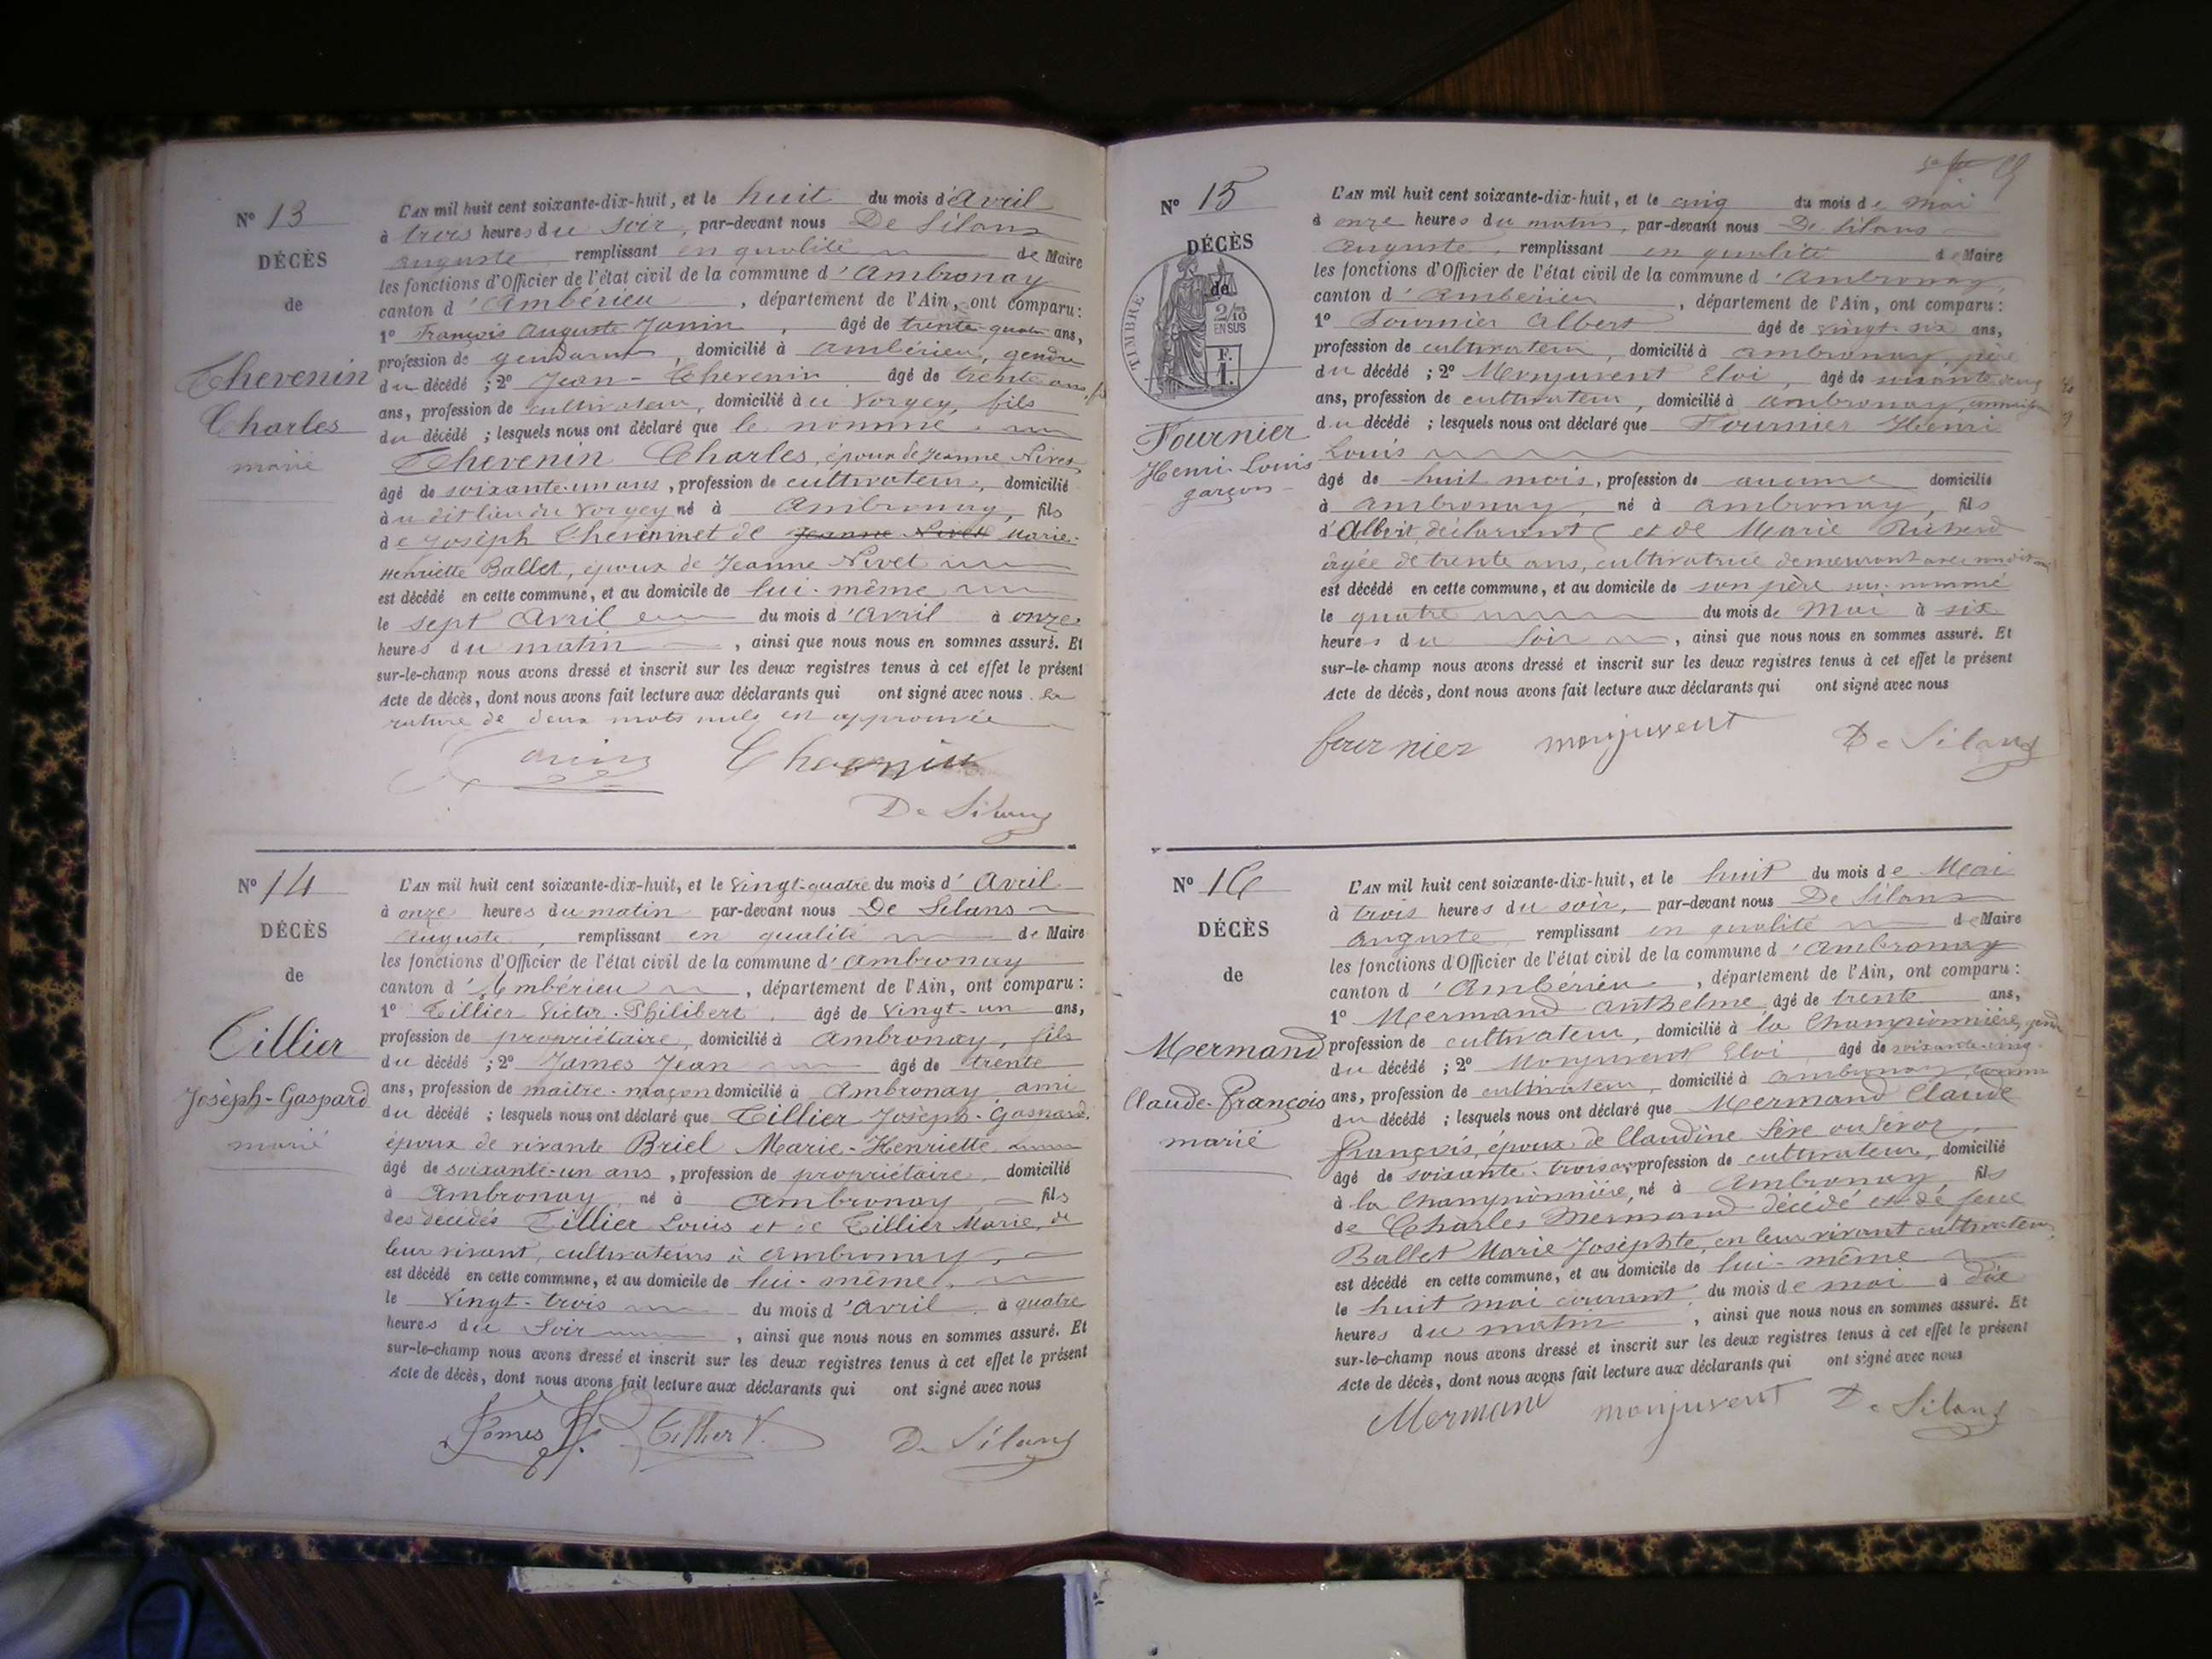 N° 13
DÉCÈS
de
Thevenin
Charles
marié
L'AN mil huit cent soixante-dix-huit, et le huit du mois d'Avril
à trois heures du soir, par-devant nous De Silans
Auguste remplissant en qualité de Maire
les fonctions d'Officier de l'état civil de la commune d'Ambronay
canton d'Ambérieu, département de l'Ain, ont comparu:
1° François Auguste Janin, âgé de trente-quatre ans,
profession de gendarme, domicilié à Ambérieu, gendre
du décédé; 2° Jean-Thevenin âgé de trente ans
ans, profession de cultivateur, domicilié à u Vorgey, fils
du décédé; lesquels nous ont déclaré que le nommé
Thevenin Charles, époux de Jeanne Nivet
âgé de soixante-un ans, profession de cultivateur, domicilié
à u dit lieu du Vorgey né à Ambronay, fils
de Joseph Thevenin et de Jeanne Nivet Marie-
Henriette Ballet, époux de Jeanne Nivet
est décédé en cette commune, et au domicile de lui-même
le sept Avril du mois d'Avril à onze
heures du matin, ainsi que nous nous en sommes assuré. Et
sur-le-champ nous avons dressé et inscrit sur les deux registres tenus à cet effet le présent
Acte de décès, dont nous avons fait lecture aux déclarants qui ont signé avec nous. la
rature de deux mots nuls est approuvée
Janin Thevenin
De Silans
N° 14
DÉCÈS
de
Tillier
Joseph-Gaspard
marié
L'AN mil huit cent soixante-dix-huit, et le vingt-quatre du mois d'Avril
à onze heures du matin par-devant nous De Silans
Auguste, remplissant en qualité de Maire
les fonctions d'Officier de l'état civil de la commune d'Ambronay
canton d'Ambérieu, département de l'Ain, ont comparu:
1° Tillier Victor-Philibert, âgé de vingt-un ans,
profession de propriétaire, domicilié à Ambronay, fils
du décédé; 2° James Jean âgé de trente
ans, profession de maître-maçon domicilié à Ambronay ami
du décédé; lesquels nous ont déclaré que Tillier Joseph-Gaspard,
époux de vivante Briel Marie-Henriette
âgé de soixante-un ans, profession de propriétaire, domicilié
à Ambronay, né à Ambronay, fils
des décédés Tillier Louis et de Tillier Marie, de
leur vivant, cultivateurs à Ambronay,
est décédé en cette commune, et au domicile de lui-même,
le vingt-trois du mois d'Avril à quatre
heures du soir, ainsi que nous nous en sommes assuré. Et
sur-le-champ nous avons dressé et inscrit sur les deux registres tenus à cet effet le présent
Acte de décès, dont nous avons fait lecture aux déclarants qui ont signé avec nous
James Tillier V. De Silans
N° 15
DÉCÈS
de
TIMBRE
2/10
EN SUS
F.
1.
Fournier
Henri-Louis
garçon
L'AN mil huit cent soixante-dix-huit, et le cinq du mois de Mai
à onze heures du matin, par-devant nous De Silans
Auguste, remplissant en qualité de Maire
les fonctions d'Officier de l'état civil de la commune d'Ambronay,
canton d'Ambérieu, département de l'Ain, ont comparu:
1° Fournier Albert âgé de vingt-six ans,
profession de cultivateur, domicilié à Ambronay, père
du décédé; 2° Monjuvent Eloi, âgé de soixante cinq
ans, profession de cultivateur, domicilié à Ambronay,
du décédé; lesquels nous ont déclaré que Fournier Henri
Louis
âgé de huit mois, profession de aucune domicilié
à Ambronay, né à Ambronay, fils
d'Albert, déclarant et de Marie
âgée de trente ans, cultivatrice demeurant avec
est décédé en cette commune, et au domicile de son père sus-nommé
le quatre du mois de Mai à six
heures du soir, ainsi que nous nous en sommes assuré. Et
sur-le-champ nous avons dressé et inscrit sur les deux registres tenus à cet effet le présent
Acte de décès, dont nous avons fait lecture aux déclarants qui ont signé avec nous
fournier monjuvent De Silans
N° 16
DÉCÈS
de
Mermand
Claude-François
marié
L'AN mil huit cent soixante-dix-huit, et le huit du mois de Mai
à trois heures du soir, par-devant nous De Silans
Auguste remplissant en qualité de Maire
les fonctions d'Officier de l'état civil de la commune d'Ambronay
canton d'Ambérieu, département de l'Ain, ont comparu:
1° Mermand Anthelme, âgé de trente ans,
profession de cultivateur, domicilié à la Championnière,
du décédé; 2° Monjuvent Eloi âgé de soixante-cinq
ans, profession de cultivateur, domicilié à Ambronay,
du décédé; lesquels nous ont déclaré que Mermand Claude
François, époux de Claudine Sève ou
âgé de soixante-trois ans profession de cultivateur, domicilié
à la Championnière, né à Ambronay, fils
de Charles Mermand décédé et de feue
Ballet Marie Josephte, en leur vivant cultivateurs,
est décédé en cette commune, et au domicile de lui-même
le huit mai courant, du mois de mai à dix
heures du matin, ainsi que nous nous en sommes assuré. Et
sur-le-champ nous avons dressé et inscrit sur les deux registres tenus à cet effet le présent
Acte de décès, dont nous avons fait lecture aux déclarants qui ont signé avec nous
Mermand monjuvent De Silans